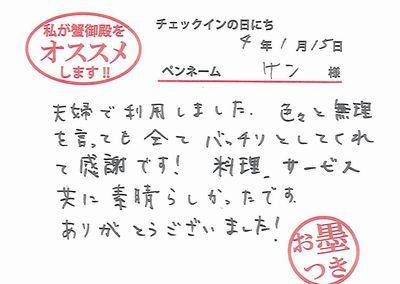 私が蟹御殿を
オススメ
します!!
チェックインの日にち
4年1月15日
ペンネーム ケン 様
夫婦で利用しました。色々と無理
を言っても全てバッチリとしてくれ
て感謝です! 料理、サービス
共に素晴らしかったです。
ありがとうございました!
お墨
つき